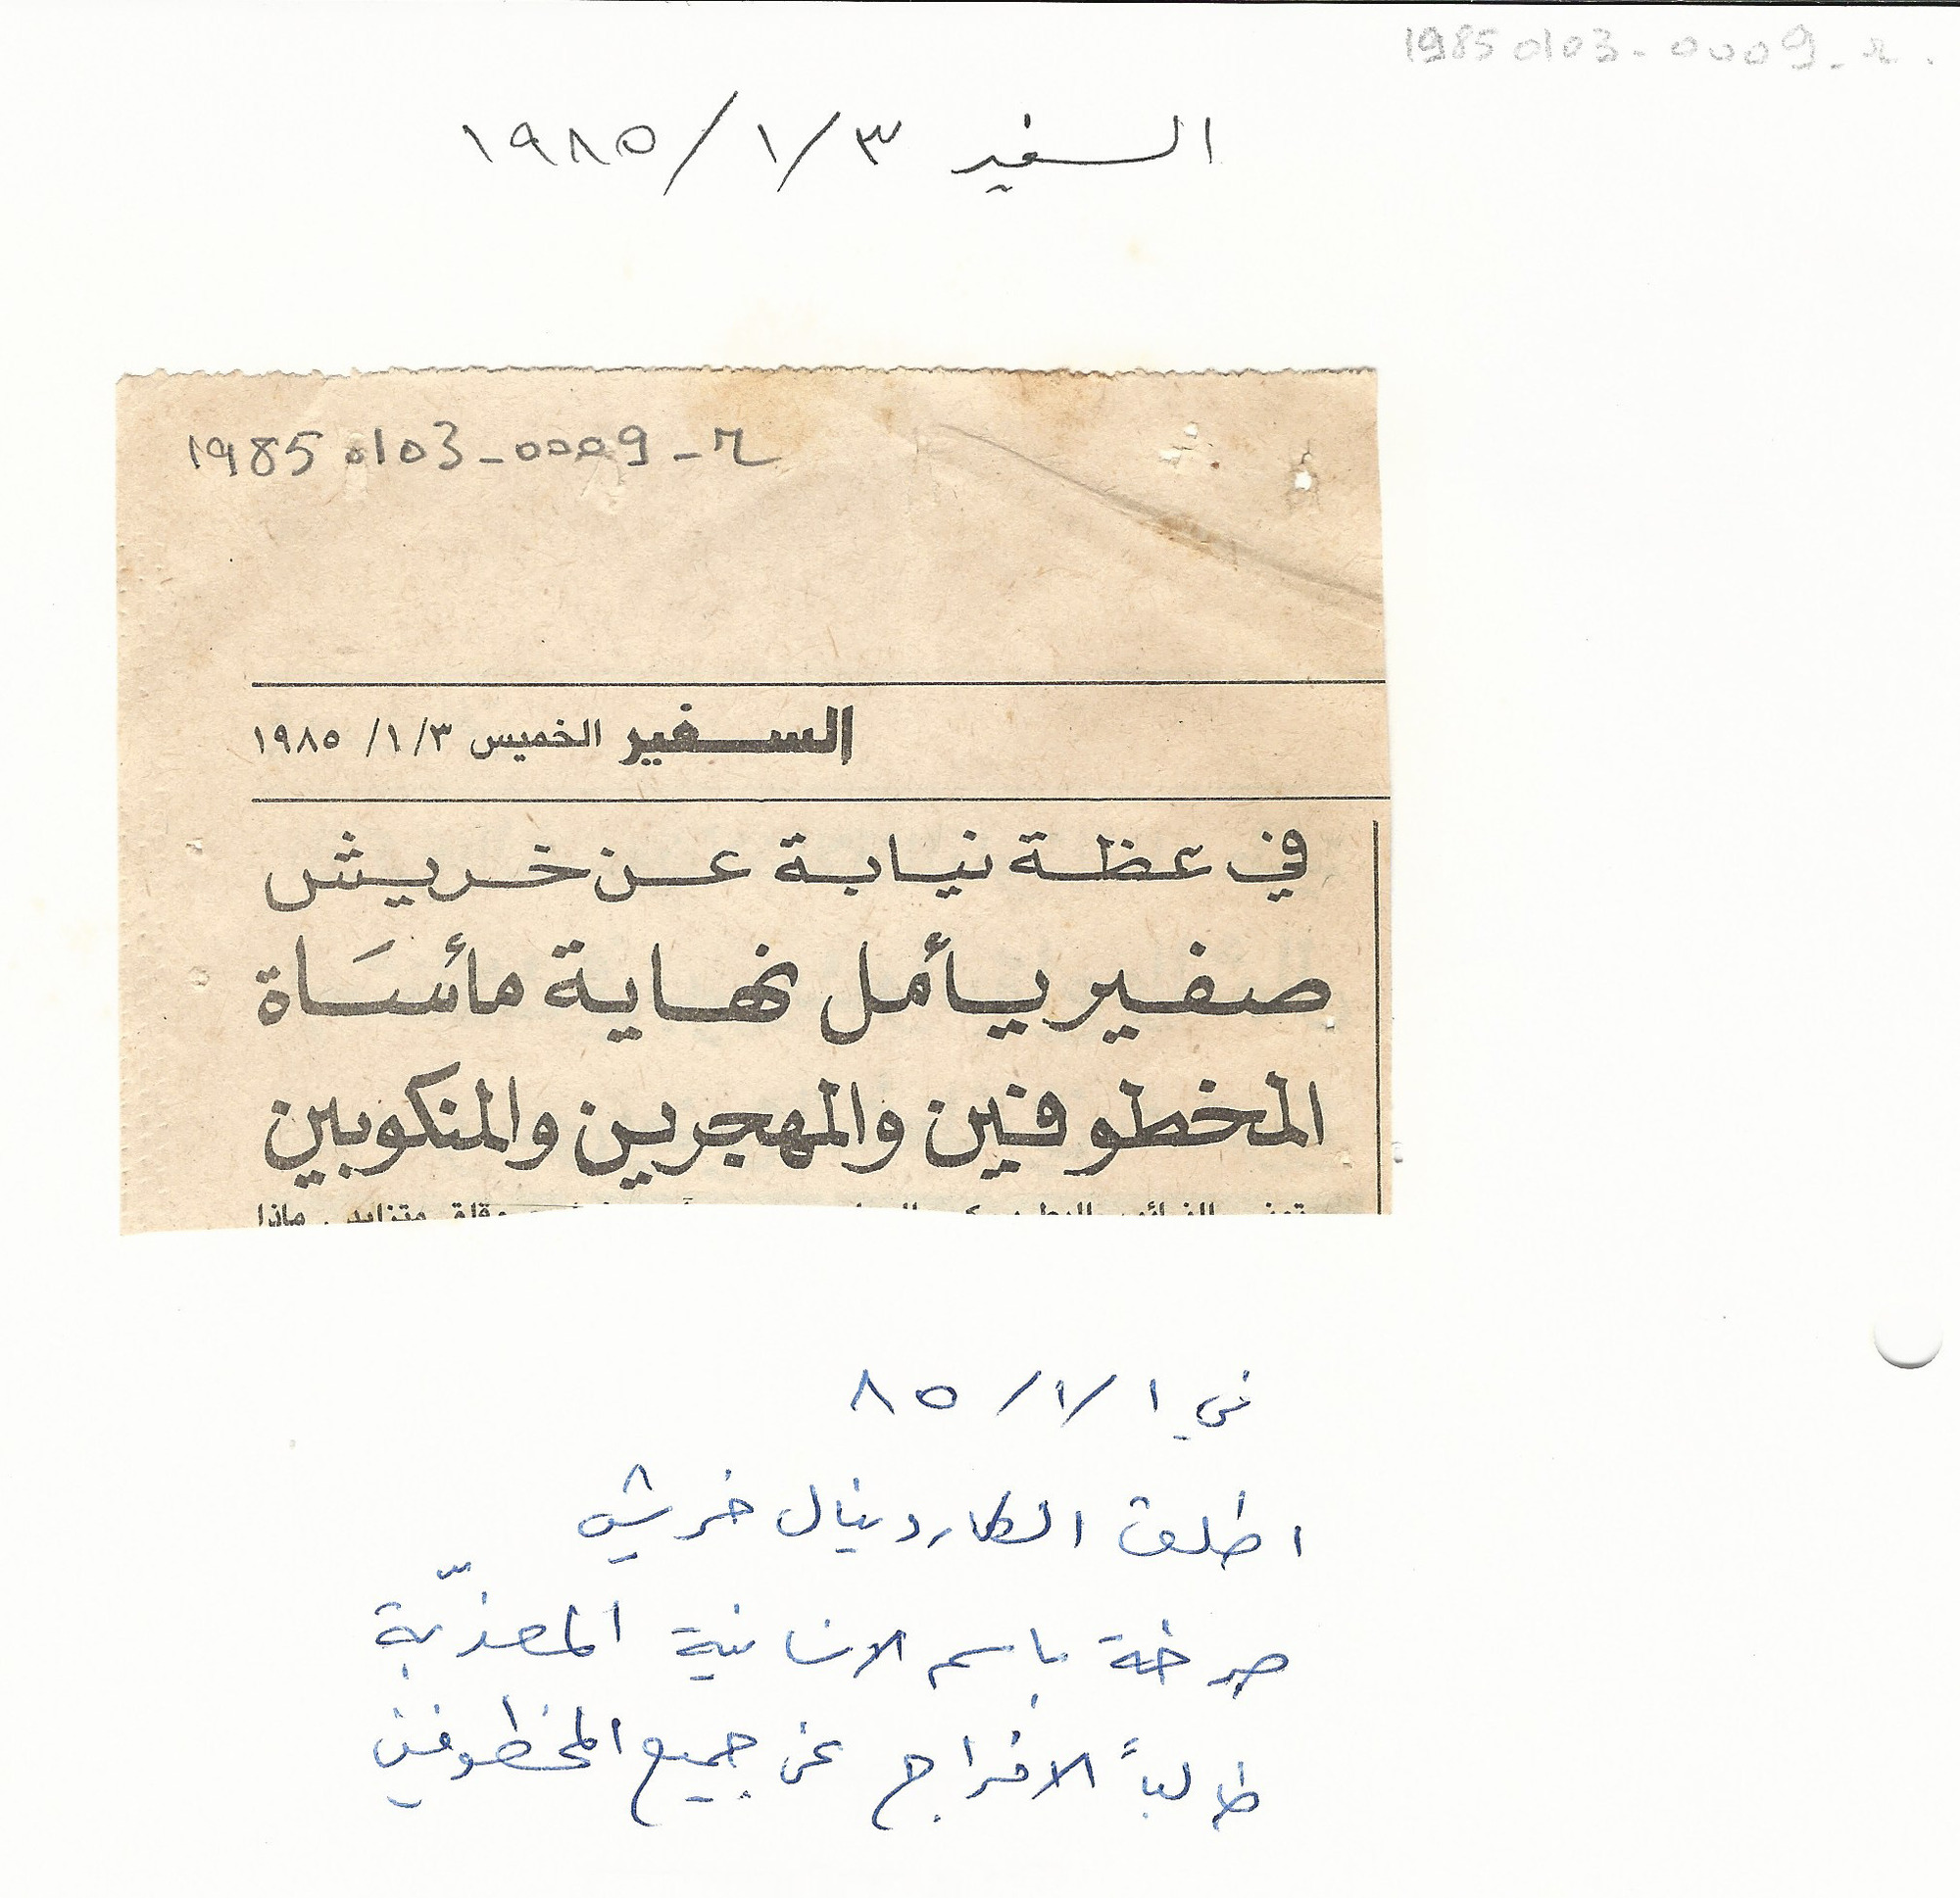 19850103-0009-r
السفير ٣/١/١٩٨٥
19850103-0009-r
السفير الخميس ٣/١/ ١٩٨٥
في عظة نيابة عن خريش
صفير يأمل نهاية مأساة
المخطوفين والمهجرين والمنكوبين
وقلق متزايد. ماذا
في ١/١/ ٨٥
اطلق الكاردينال خريش
صرخة باسم الانسانية المعذّبة
طالباً الافراج عن جميع المخطوفين